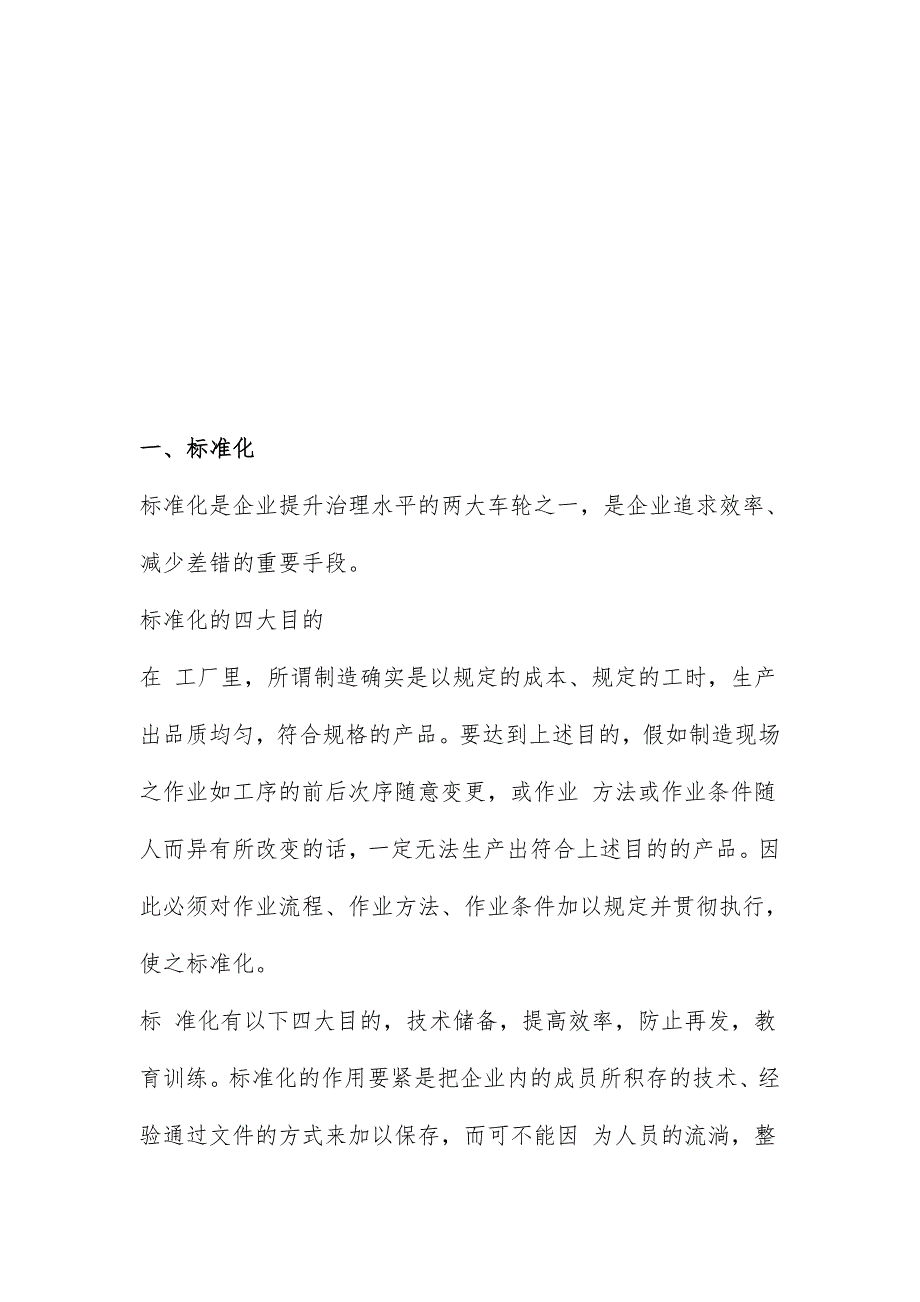 一、标准化
标准化是企业提升治理水平的两大车轮之一，是企业追求效率、
减少差错的重要手段。
标准化的四大目的
在 工厂里，所谓制造确实是以规定的成本、规定的工时，生产
出品质均匀，符合规格的产品。要达到上述目的，假如制造现场
之作业如工序的前后次序随意变更，或作业 方法或作业条件随
人而异有所改变的话，一定无法生产出符合上述目的的产品。因
此必须对作业流程、作业方法、作业条件加以规定并贯彻执行，
使之标准化。
标 准化有以下四大目的，技术储备，提高效率，防止再发，教
育训练。标准化的作用要紧是把企业内的成员所积存的技术、经
验通过文件的方式来加以保存，而可不能因 为人员的流淌，整